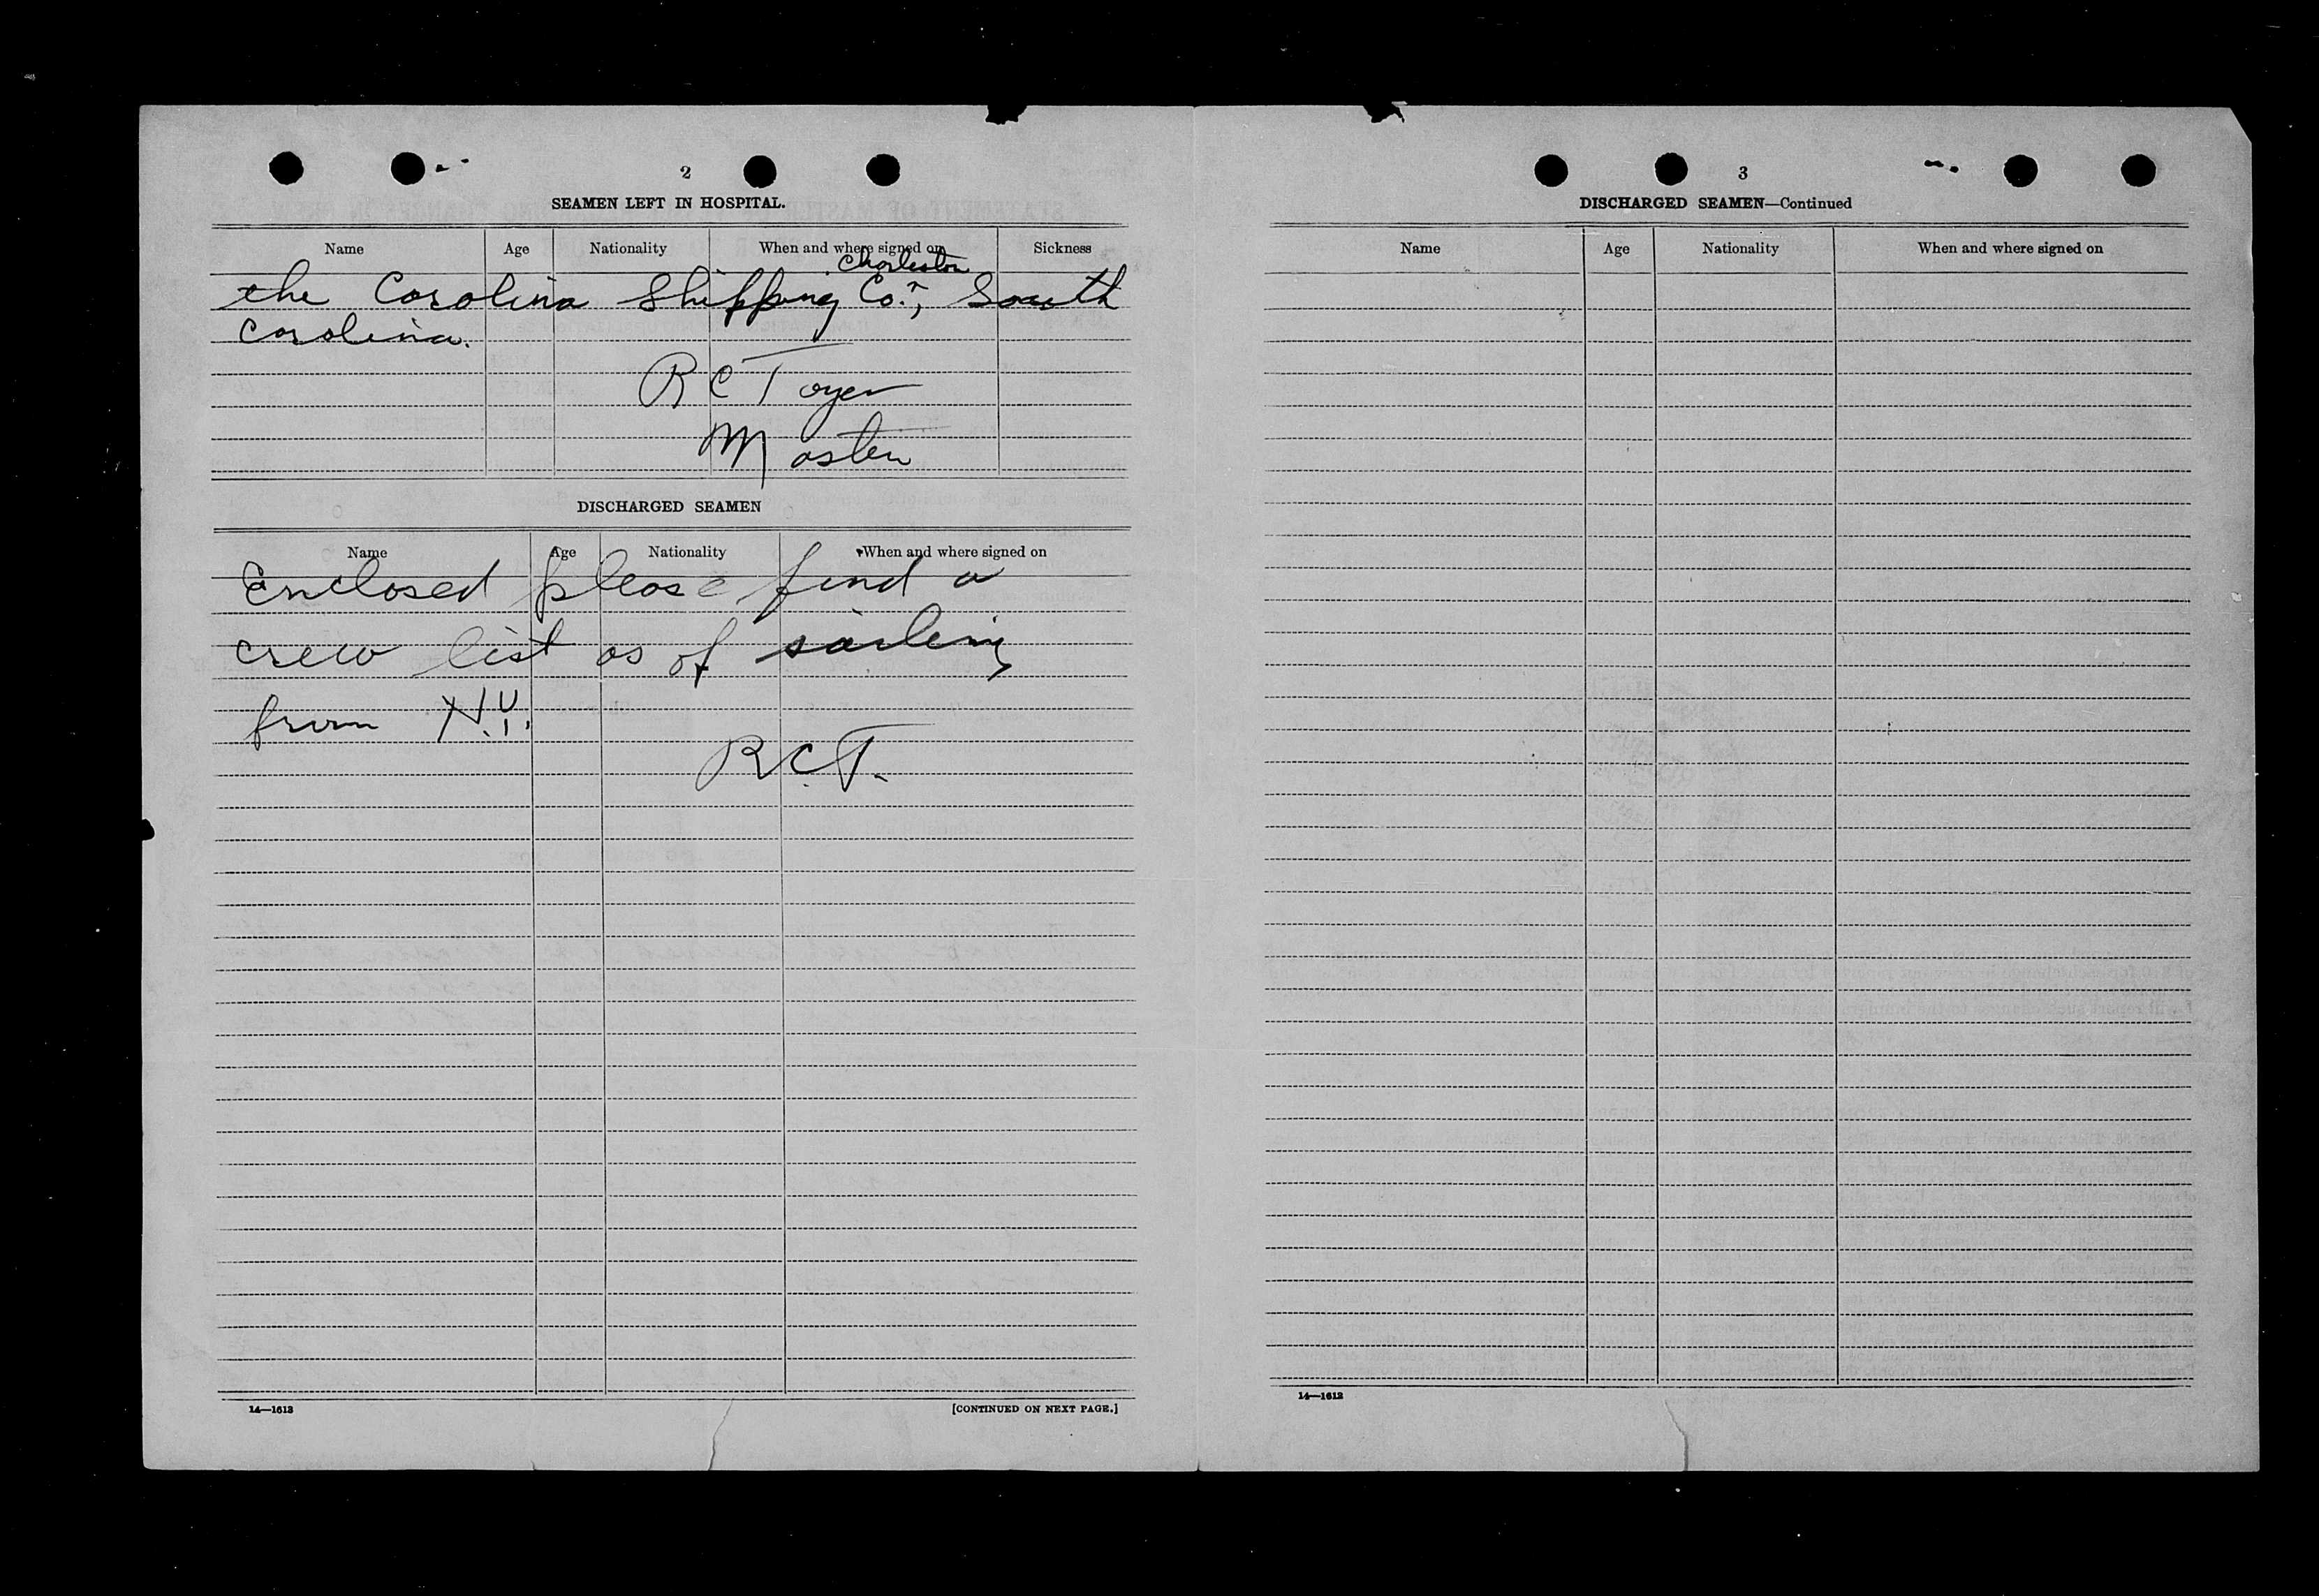 2
SEAMEN LEFT IN HOSPITAL.
Name Age Nationality When and where signed on Sickness
Charleston
the Carolina Shipping Co., South
Carolina.
R C Toyer
Master
DISCHARGED SEAMEN
Name Age Nationality When and where signed on
Enclosed please find a
crew list as of sailing
from N.Y.
R.C.T.
14—1613
[CONTINUED ON NEXT PAGE.]
3
DISCHARGED SEAMEN—Continued
Name Age Nationality When and where signed on
14—1613